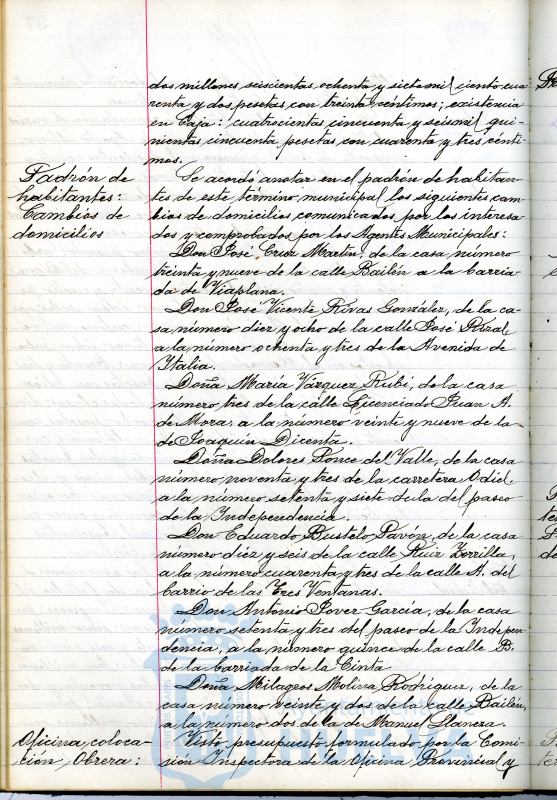 dos millones seiscientas ochenta y siete mil ciento cua
renta y dos pesetas con treinta céntimos; existencia
en Caja: cuatrocientas cincuenta y seis mil qui-
nientas cincuenta pesetas con cuarenta y tres cénti
mos.
Padrón de
habitantes:
Cambios de
domicilios
Se acordó anotar en el padrón de habitan-
tes de este término municipal los siguientes cam
bios de domicilios comunicados por los interesa-
dos y comprobados por los Agentes Municipales:
Don José Cruz Martín, de la casa número
treinta y nueve de la calle Bailén a la barria-
da de Viaplana.
Don José Vicente Rivas González, de la ca-
sa número diez y ocho de la calle José Rizal
a la número ochenta y tres de la Avenida de
Italia.
Doña María Vázquez Rubí, de la casa
número tres de la calle Licenciado Juan A.
de Mora, a la número veinte y nueve de la
de Joaquín Dicenta.
Doña Dolores Ponce del Valle, de la casa
número noventa y tres de la carretera Odiel
a la número setenta y siete de la del paseo
de la Independencia.
Don Eduardo Bustelo Pavón, de la casa
número diez y seis de la calle Ruiz Zorrilla,
a la número cuarenta y tres de la calle A. del
barrio de las Tres Ventanas.
Don Antonio Jover García, de la casa
número setenta y tres del paseo de la Indepen-
dencia, a la número quince de la calle B.
de la barriada de la Cinta
Doña Milagros Molina Rodríguez, de la
casa número veinte y dos de la calle Bailén,
a la número dos de la de Manuel Llanera.
Oficina coloca-
ción Obrera:
Visto presupuesto formulado por la Comi-
sión Inspectora de la Oficina Provincial y
HUELVA